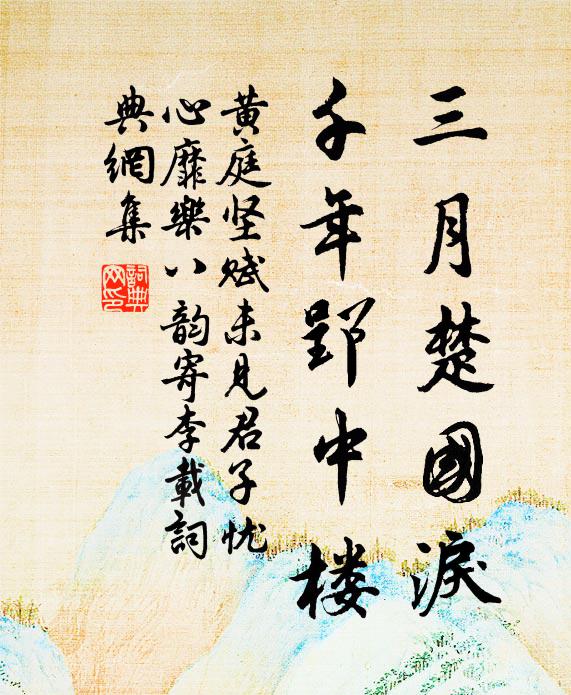 三月楚國淚
千年郢中楼
黄庭坚赋未见君子忧
心靡樂八韵寄李載詞
典網集
詞典网印